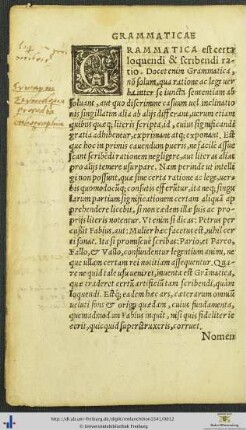 GRAMMATICAE
GRAMMATICA est certa
loquendi & scribendi ra-
tio. Docet enim Grammatica,
nõ solum, qua ratione ac lege ver
ba inter se iuncta sententiam ab
soluant, aut quo discrimine casuum uel inclinatio
nis singillatim alia ab alijs differant, uerum etiam
quibus quæq; literis scripta, id, cuius significandi
gratia adhibentur, exprimant atq; exponant. Est
que hoc in primis cauendum pueris, ne facile assue
scant scribẽdi rationem negligere, aut literas alias
pro alijs temere usurpare. Nam perinde ut intelli
gi non possunt, quæ sine certa ratione ac lege, uer
bis quomodocũq; confusis efferuntur, ita neq; singu
larum partium significationem certam aliquã ap
prehendere licebit, si non eædem illæ suis ac pro-
prijs literis notentur. Vt enim si dicas: Petrus per
cußit Fabius, aut: Mulier hæc facetus est, nihil cer
ti sonat. Ita si pro
Pario, et Parco,
Fallo, & Vallo, confundentur legentium animi, ne
que ullam certam rei notitiam assequentur. Qua-
re ne quid tale usu
inuenta est Grãmatica,
quæ traderet certã artificiũ tam scribendi, quàm
loquendi. Estq; eadem hæc ars, cæterarum omniũ
ueluti fons & origo quædam, cuius fundamenta,
quemadmodum Fabius inquit, nisi quis fideliter ie
cerit, quicquid superstruxeris, corruet.
Nomen
© Universitätsbibliothek Freiburg